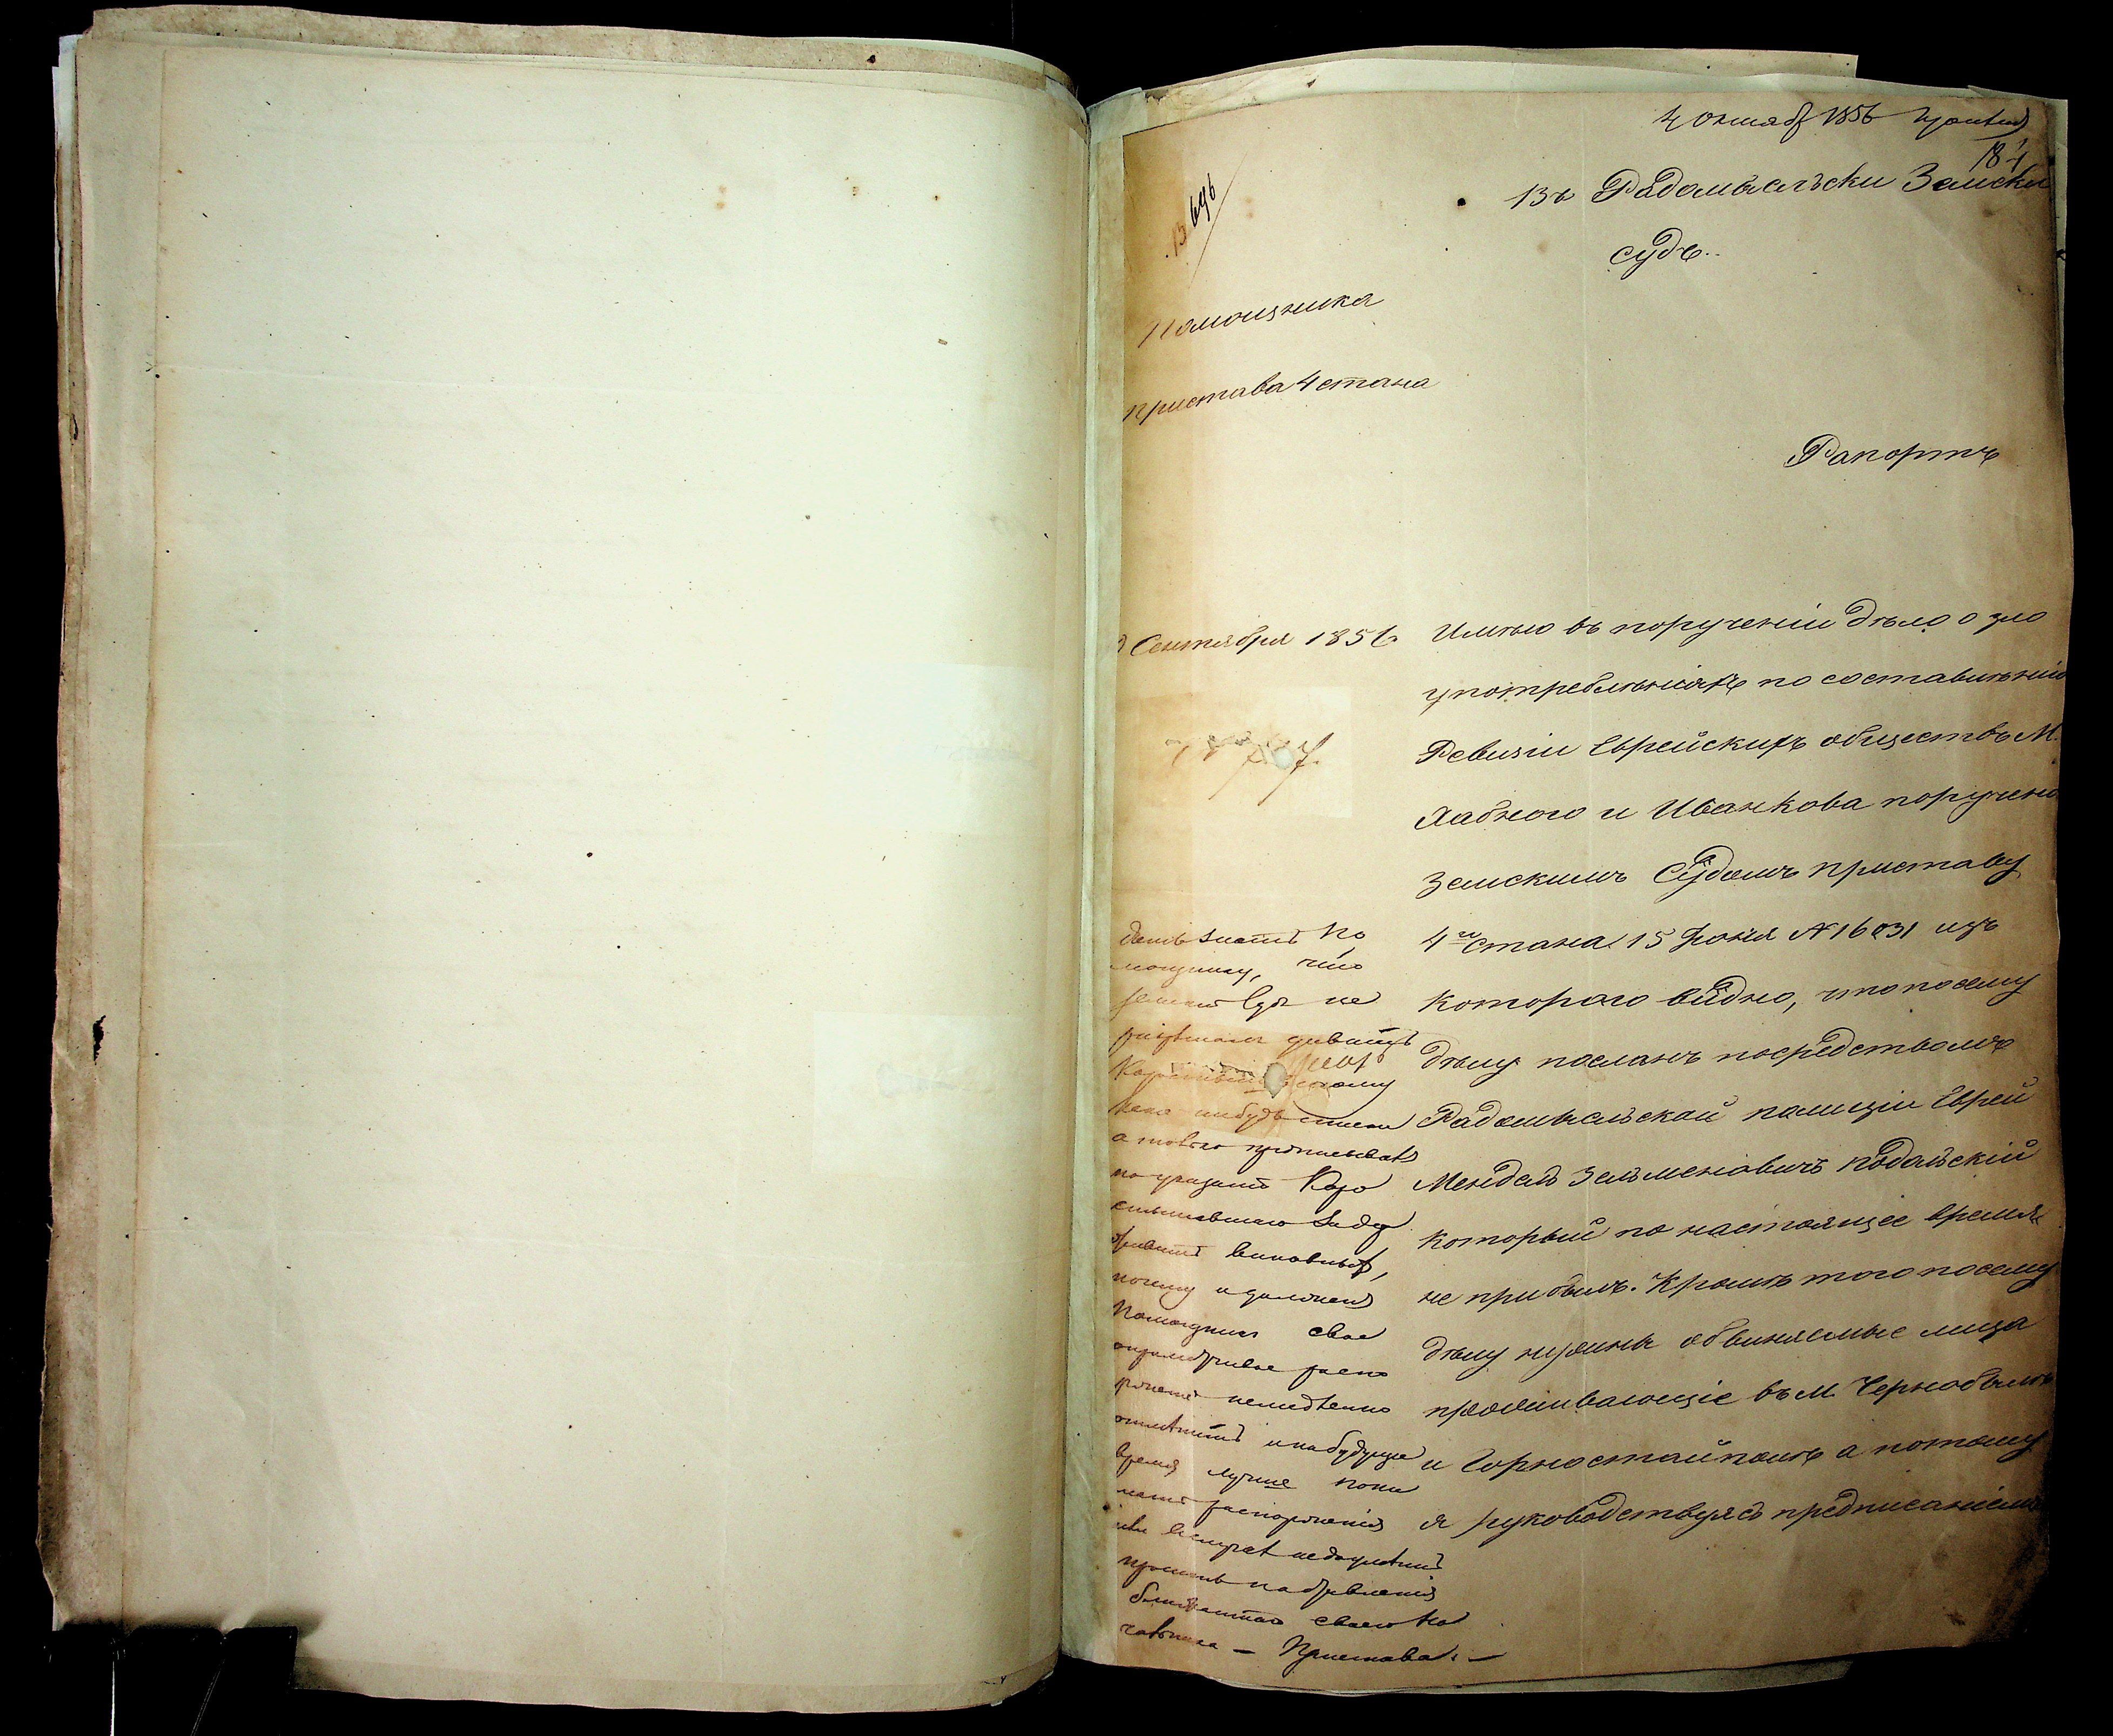 4 октяб 1856
184
13646
Въ Радомысльски Земски
Судъ.
Помощника
Пристава 4 стана
Рапортъ
Сентября 1856
Имѣю въ порученіи дѣло о зло
употребленіяхъ по составленію
Ревизіи Еврейскихъ обществъ М.
Хабного и Иванкова поручено
Земскимъ Судомъ приставу
4го стана 15 Іюня № 16031 изъ
котораго видно, что по сему
дѣлу посланъ посредствомъ
Радомысльской полиціи Еврей
Мендель Зельменовичъ Подольскій
который по настоящее время
не прибылъ. Кромѣ того по сему
дѣлу нужны обвиняемые лица
проживающіе въ М. Чернобылѣ
и Горностайполѣ а потому
я руководствуясь предписаніемъ
Дать знать По
мощнику, что
Земскій Судъ не
кого нибудь
а только прописывать
по указанію
виновныхъ,
почему и должен
Помощник свое
распо
ряженіе немедленно
отмѣнить и на будущее
время лучше пони
мать распоряженія
или въ случаѣ
просить наставленія
ближайшаго своего На
чальника — Пристава. —